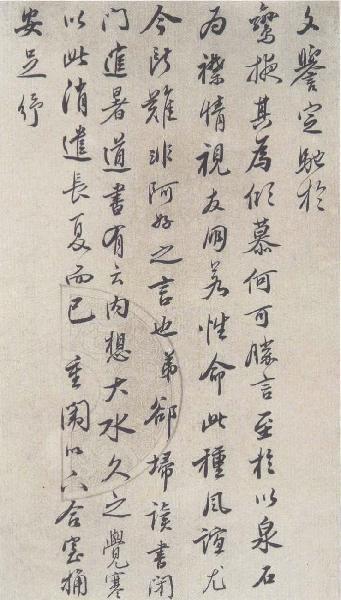 文譽定馳於
其為傾慕何可勝言至於以泉石
為襟情視友朋若性命此種風誼尤
今所難非阿好之言也弟卻掃讀書閉
門避暑道書有云內想大水久之覺寒
以此消遣長夏而已 重闈以下合
安足紓